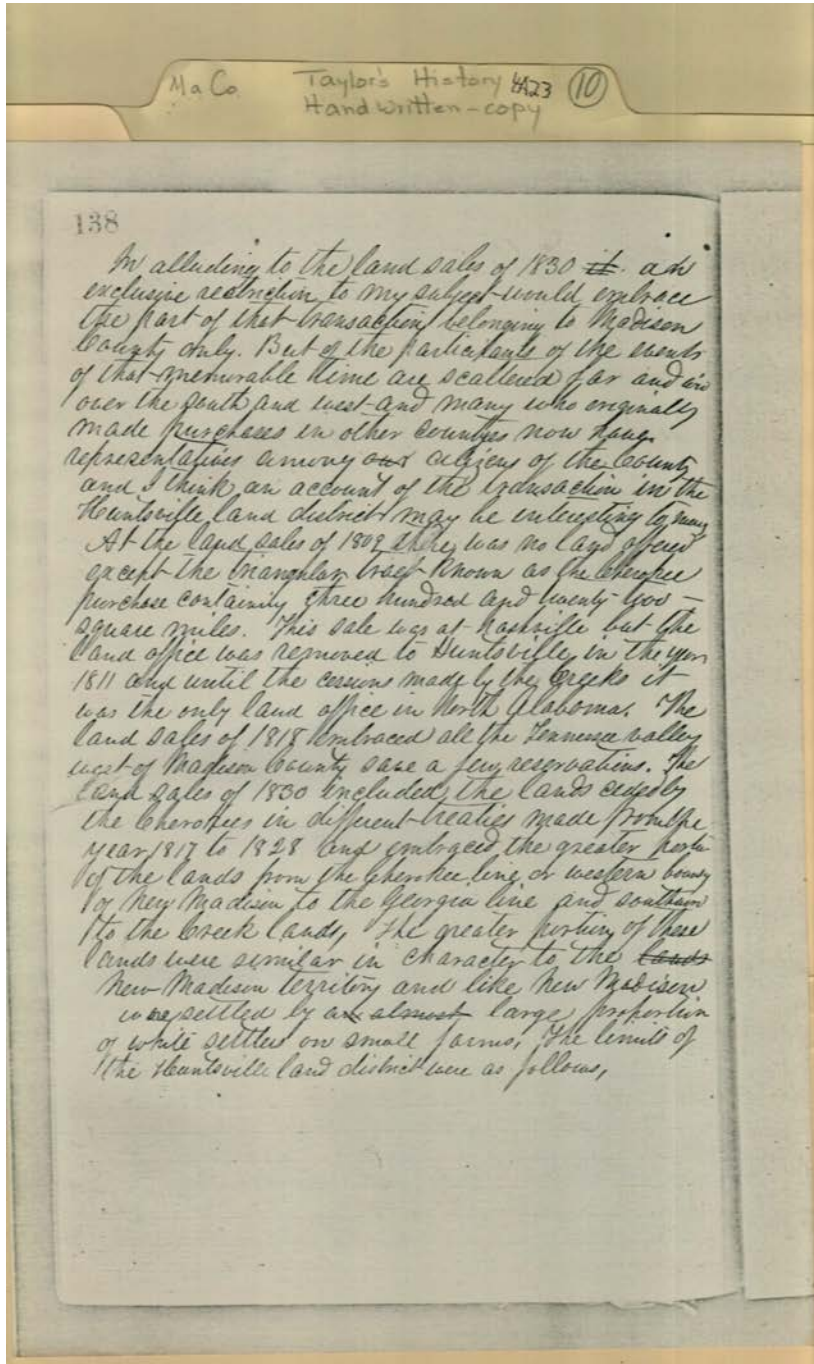 Ma Co Taylor's History 4A23 10
Handwritten - copy
138
In alluding to the land sales of 1830 it an
exclusive restriction to my subject would embrace
the part of that transaction belonging to Madison
County only. But of the participants of the events
of that memorable time are scattered far and
over the south and west and many who originally
made purchases in other counties now have
representatives among our citizens of the County
and I think an account of the transaction in the
Huntsville land district may be interesting to many
At the land sales of 1809 there was no land offered
except the triangular tract known as the Cherokee
purchase containing three hundred and twenty two -
square miles. This sale was at Nashville but the
land office was removed to Huntsville in the year
1811 and until the cessions made by the Creeks it
was the only land office in North Alabama. The
land sales of 1818 embraced all the Tennessee valley
west of Madison County save a few reservations. The
land sales of 1830 included the lands ceded by
the Cherokees in different treaties made from the
year 1817 to 1828 and embraced the greater
of the lands from the Cherokee line or western
of New Madison to the Georgia line and southern
to the Creek lands, the greater portion of these
lands were similar in character to the lands
New Madison territory and like New Madison
were settled by an almost large proportion
of white settlers on small farms, The limits of
the Huntsville land district were as follows,